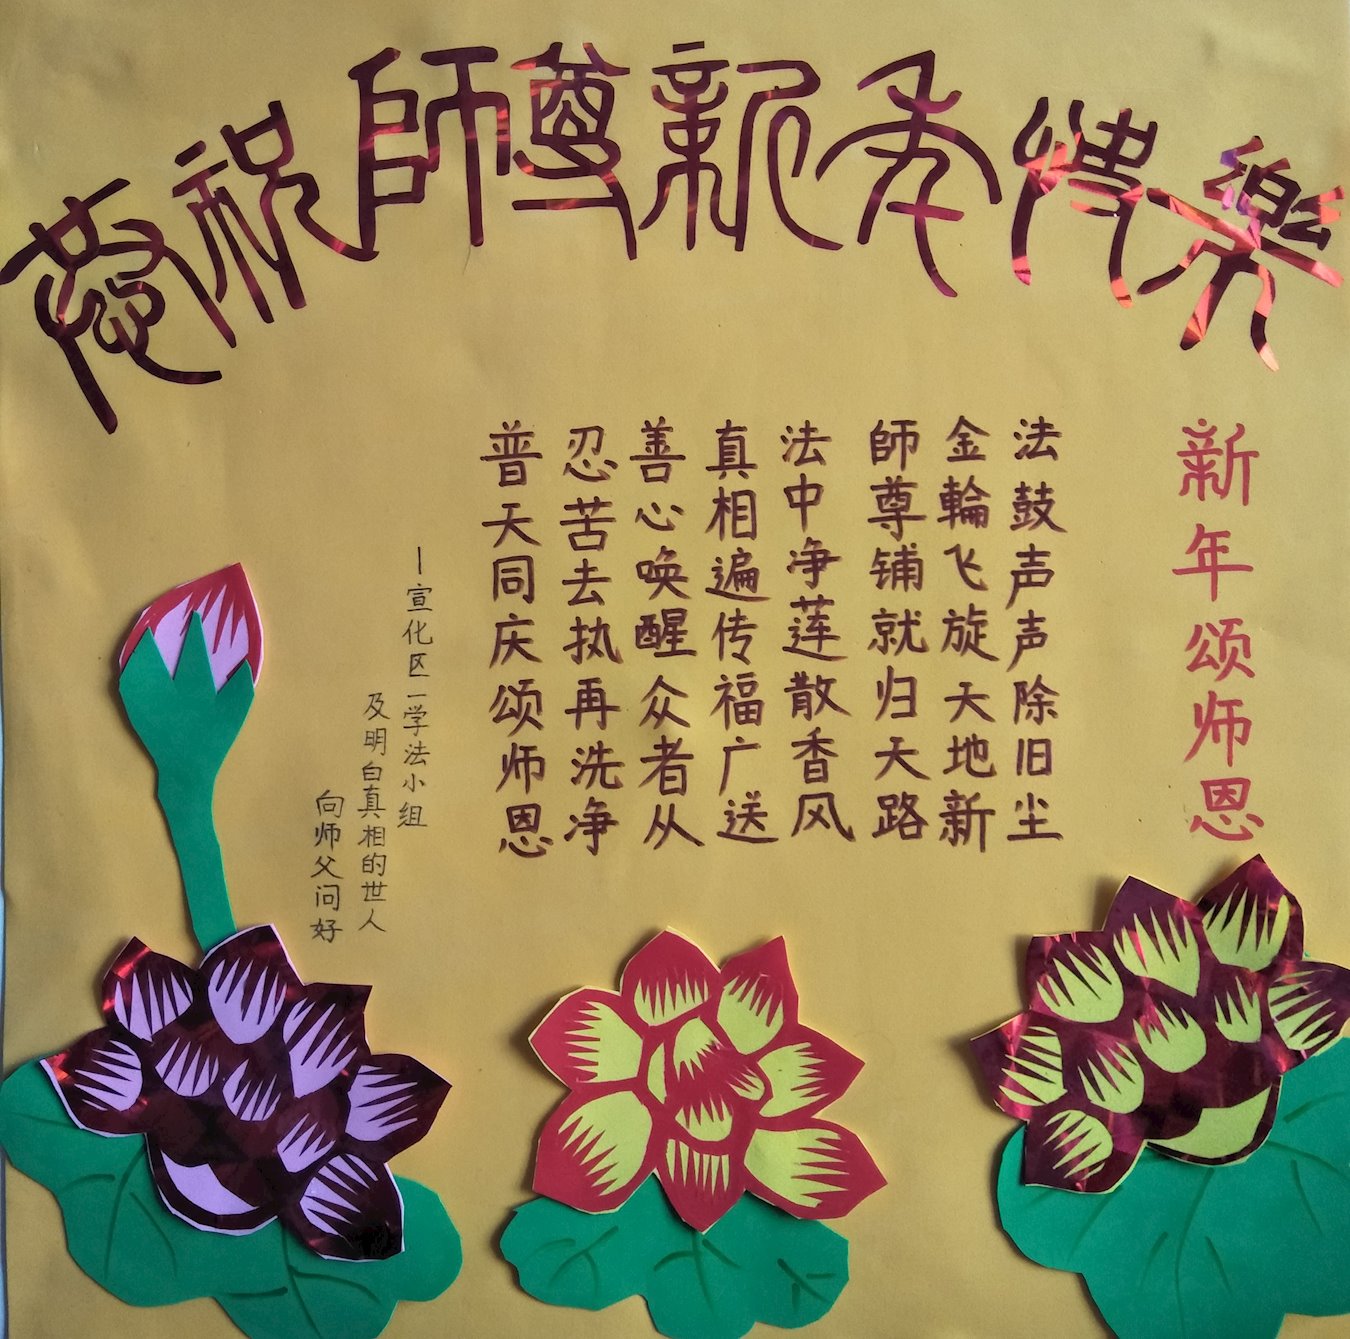 恭祝師尊新年快樂
新年颂师恩
法鼓声声除旧尘
金輪飞旋天地新
師尊铺就归天路
法中净莲散香风
真相遍传福广送
善心唤醒众者从
忍苦去执再洗净
普天同庆颂师恩
—宣化区一学法小组
及明白真相的世人
向师父问好